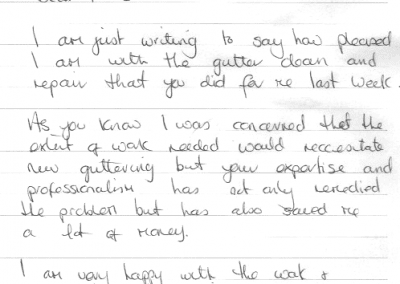 I am just writing to say how pleased
I am with the gutter clean and
repair that you did for me last week.
As you know I was concerned that the
extent of work needed would necessitate
new guttering but your expertise and
professionalism has not only remedied
the problem but has also saved me
a lot of money.
I am very happy with the work &